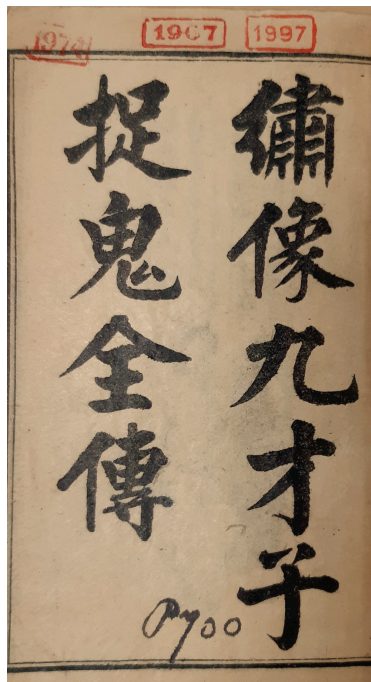 1967
1997
繡像九才子
捉鬼全傳
P700